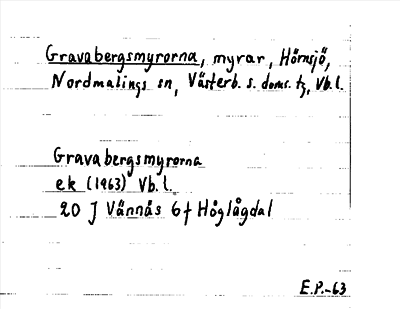 Gravabergsmyrorna, myrar, Hörnsjö,
Nordmalings sn, Västerb. s. doms. tg, Vb. l.
Gravabergsmyrorna
ek (1963) Vb. l.
20 J Vännås 6f Höglågdal
E.P.-63